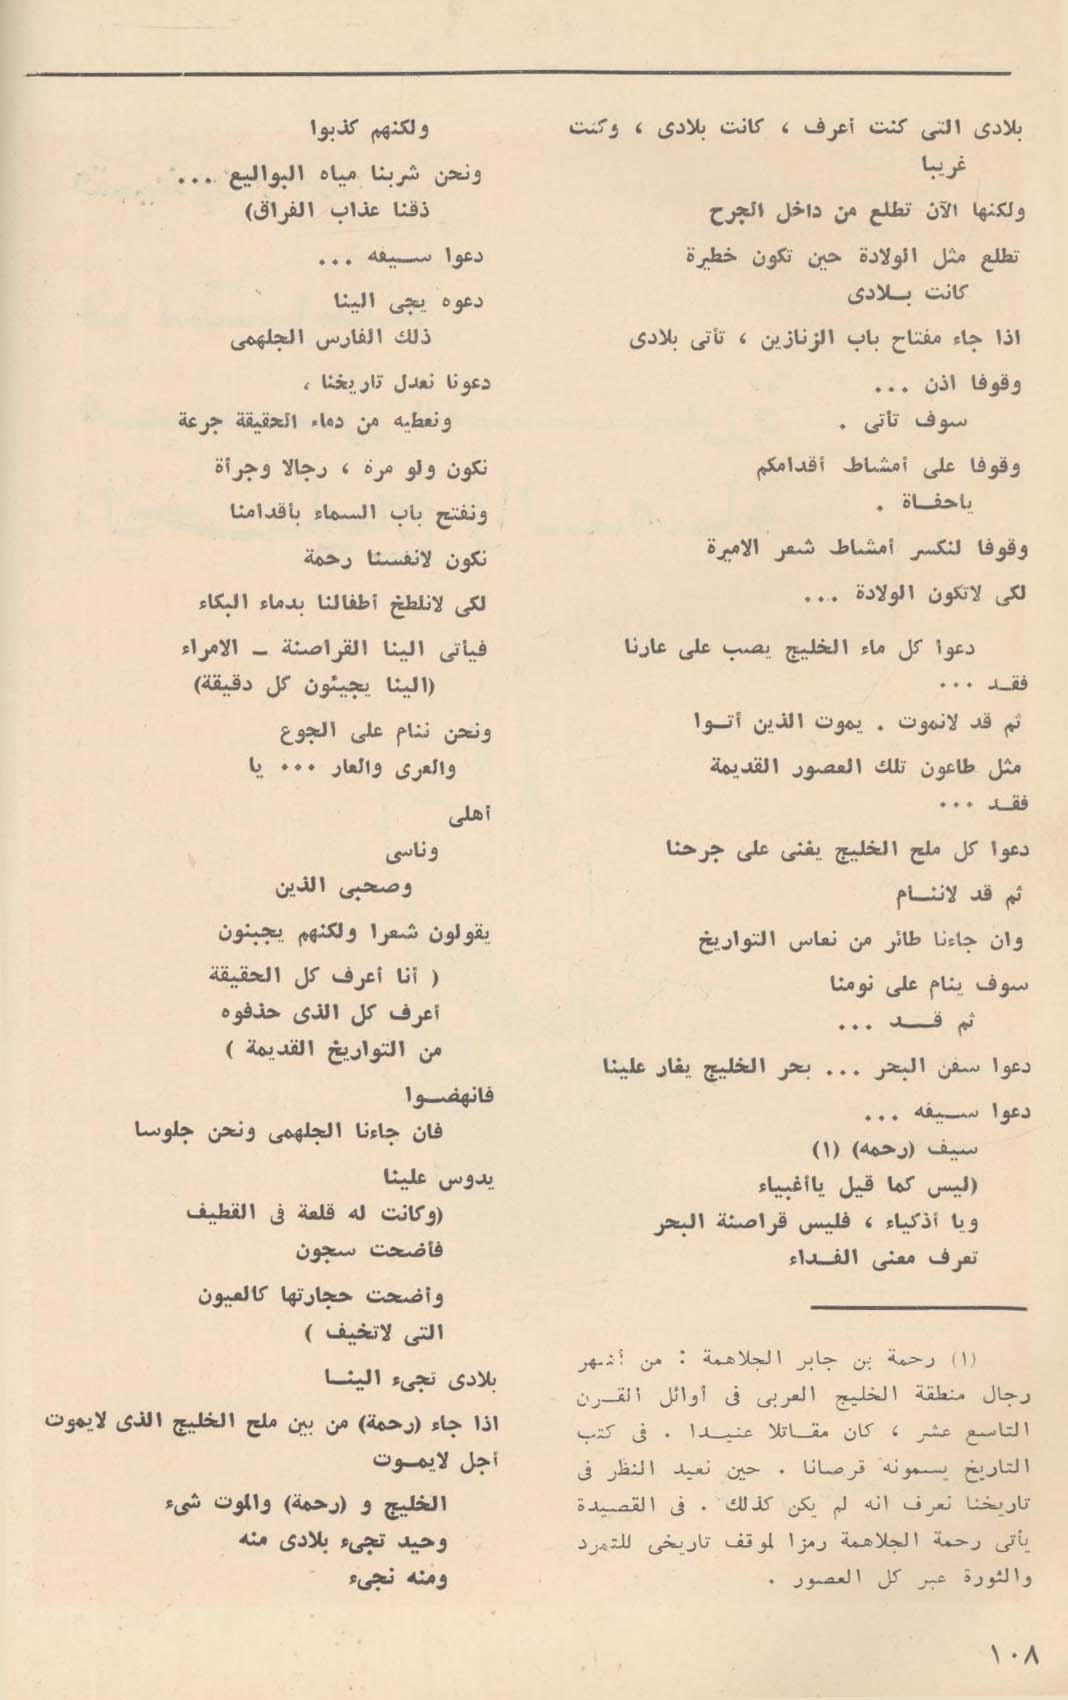 بلادى التى كنت أعرف ، كانت بلادى ، وكنت
غريبا
ولكنها الآن تطلع من داخل الجرح
تطلع مثل الولادة حين تكون خطيرة
كانت بــلادى
اذا جاء مفتاح باب الزنازين ، تأتى بلادى
وقوفا اذن ...
سوف تأتى .
وقوفا على أمشاط أقدامكم
ياحفــاة .
وقوفا لنكسر أمشاط شعر الاميرة
لكى لاتكون الولادة ...
دعوا كل ماء الخليج يصب على عارنا
فقــد ...
ثم قد لانموت . يموت الذين أتــوا
مثل طاعون تلك العصور القديمة
فقــد ...
دعوا كل ملح الخليج يغنى على جرحنا
ثم قد لاننــام
وان جاءنا طائر من نعاس التواريخ
سوف ينام على نومنا
ثم قـــد ...
دعوا سفن البحر ... بحر الخليج يغار علينا
دعوا ســيفه ...
سيف (رحمه) (١)
(ليس كما قيل ياأغبياء
ويا أذكياء ، فليس قراصنة البحر
تعرف معنى الفــداء
(١) رحمة بن جابر الجلاهمة : من أشهر
رجال منطقة الخليج العربى فى أوائل القــرن
التاسع عشر ، كان مقــاتلا عنيــدا . فى كتب
التاريخ يسمونه قرصانا . حين نعيد النظر فى
تاريخنا نعرف انه لم يكن كذلك . فى القصيدة
يأتى رحمة الجلاهمة رمزا لموقف تاريخى للتمرد
والثورة عبر كل العصور .
ولكنهم كذبوا
ونحن شربنا مياه البواليع ...
ذقنا عذاب الفراق)
دعوا ســيفه ...
دعوه يجى الينا
ذلك الفارس الجلهمى
دعونا نعدل تاريخنا ،
ونعطيه من دماء الحقيقة جرعة
نكون ولو مرة ، رجالا وجرأة
ونفتح باب السماء بأقدامنا
نكون لانفسنا رحمة
لكى لانلطخ أطفالنا بدماء البكاء
فيأتى الينا القراصنة ــ الامراء
(الينا يجيئون كل دقيقة)
ونحن ننام على الجوع
والعرى والعار ... يا
أهلى
وناسى
وصحبى الذين
يقولون شعرا ولكنهم يجبنون
( أنا أعرف كل الحقيقة
أعرف كل الذى حذفوه
من التواريخ القديمة )
فانهضــوا
فان جاءنا الجلهمى ونحن جلوسا
يدوس علينا
(وكانت له قلعة فى القطيف
فأضحت سجون
وأضحت حجارتها كالعيون
التى لاتخيف )
بلادى تجىء الينــا
اذا جاء (رحمة) من بين ملح الخليج الذى لايموت
أجل لايمــوت
الخليج و (رحمة) والموت شىء
وحيد تجىء بلادى منه
ومنه نجىء
١٠٨